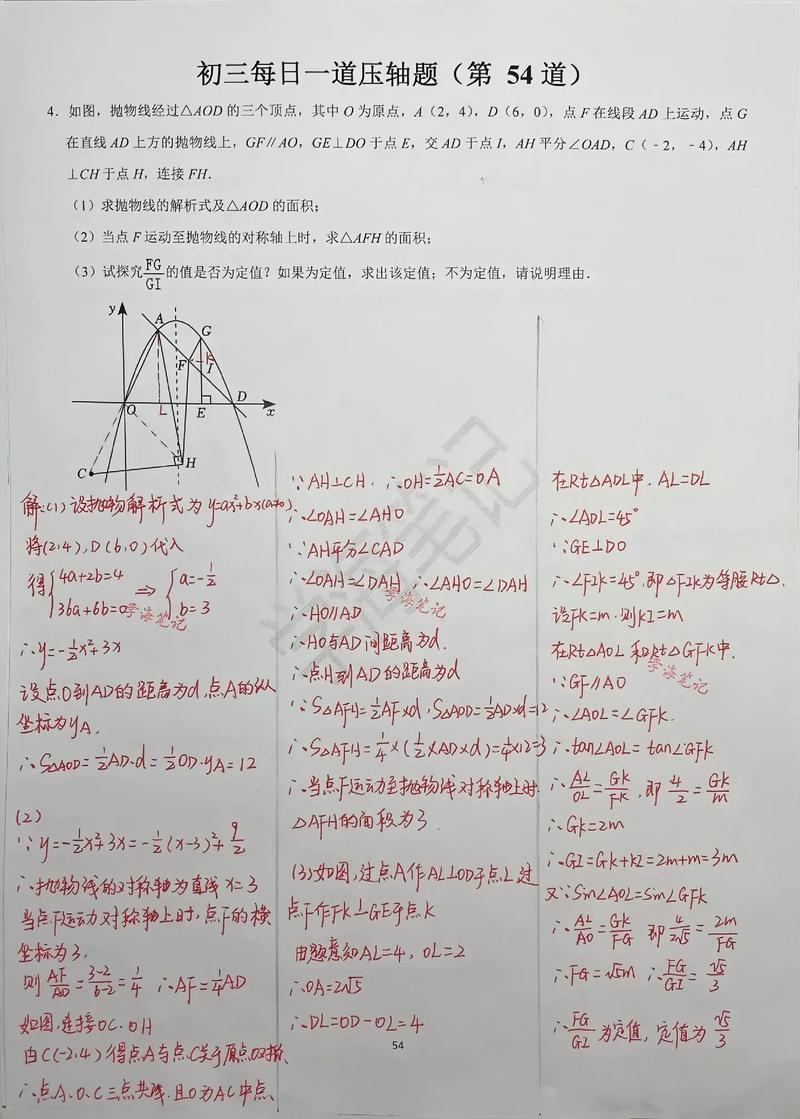 初三每日一道压轴题（第 54 道）
4．如图，抛物线经过△AOD 的三个顶点，其中 O 为原点，A（2，4），D（6，0），点 F 在线段 AD 上运动，点 G
在直线 AD 上方的抛物线上，GF∥AO，GE⊥DO 于点 E，交 AD 于点 I，AH 平分∠OAD，C（﹣2，﹣4），AH
⊥CH 于点 H，连接 FH．
（1）求抛物线的解析式及△AOD 的面积；
（2）当点 F 运动至抛物线的对称轴上时，求△AFH 的面积；
（3）试探究FG/GI的值是否为定值？如果为定值，求出该定值；不为定值，请说明理由．
y
A
G
F
K
I
O
L
E
D
x
C
H
解:(1) 设抛物解析式为 y=ax²+bx(a≠0)
将(2,4), D(6,0)代入
得{4a+2b=4 36a+6b=0 ⇒ {a=-1/2 b=3
∴y=-1/2x²+3x
设点O到AD的距离为d,点A的纵
坐标为yA.
∴S△AOD=1/2AD·d=1/2OD·yA=12
(2)
∵y=-1/2x²+3x=-1/2(x-3)²+9/2
∴抛物线的对称轴为直线x=3
当点F运动对称轴上时,点F的横
坐标为3.
则 AF/AD=3-2/6-2=1/4 ∴AF=1/4AD
如图,连接OC.OH
由C(-2,4)得点A与点C关于原点O对称.
∴点A、O、C三点共线,且O为AC中点、
∵AH⊥CH. ∴OH=1/2AC=OA
∴∠OAH=∠AHO
∵AH平分∠CAD
∴∠OAH=∠DAH ∴∠AHO=∠DAH
∴HO∥AD
∴HO与AD间距离为d.
∴点H到AD的距离为d
∵S△AFH=1/2AF×d,S△AOD=1/2AD×d=12
∴S△AFH=1/4×(1/2×AD×d)=1/4×12=3
∴当点F运动至抛物线对称轴上时
△AFH的面积为3
(3)如图,过点A作AL⊥OD于点L,过
点F作FK⊥GE于点K
由题意知AL=4, OL=2
∴OA=2√5
∴DL=OD-OL=4
在Rt△ADL中. AL=DL
∴∠ADL=45°
∵GE⊥DO
∴∠FIK=45°,即△FIK为等腰Rt△.
设FK=m.则KI=m
在Rt△AOL 和Rt△GFK中.
∵GF∥AO
∴∠AOL=∠GFK.
∴tan∠AOL=tan∠GFK
∴AL/OL=GK/FK,即 4/2=GK/m
∴GK=2m
∴GI=GK+KI=2m+m=3m
又∵Sin∠AOL=Sin∠GFK
∴AL/AO=GK/FG 即 4/2√5=2m/FG
∴FG=√5m ∴FG/GI=√5/3
∴FG/GI为定值,定值为√5/3
54
学海笔记
学海笔记
学海笔记
学海笔记